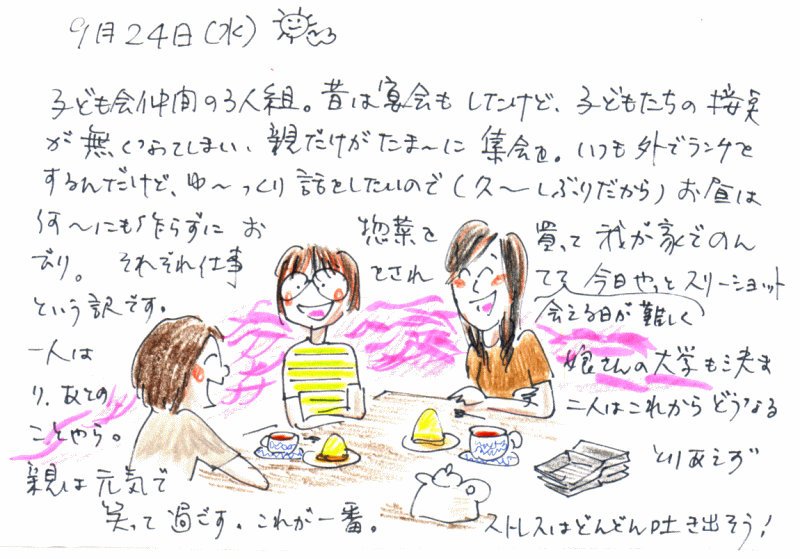 9月24日(水)
子ども会仲間の3人組。昔は宴会もしたけど、子どもたちの接点
が無くなってしまい、親だけがたま〜に集会を。いつも外でランチを
するんだけど、ゆ〜っくり話をしたいので(久〜しぶりだから)お昼は
何〜にも作らずにお惣菜を買って我が家でのん
びり。それぞれ仕事をされてて、今日やっとスリーショット
会える日が難しく
という訳です。
一人は娘さんの大学も決ま
り、あとの二人はこれからどうなる
ことやら。とりあえず
親は元気で
笑って過ごす。これが一番。ストレスはどんどん吐き出そう!